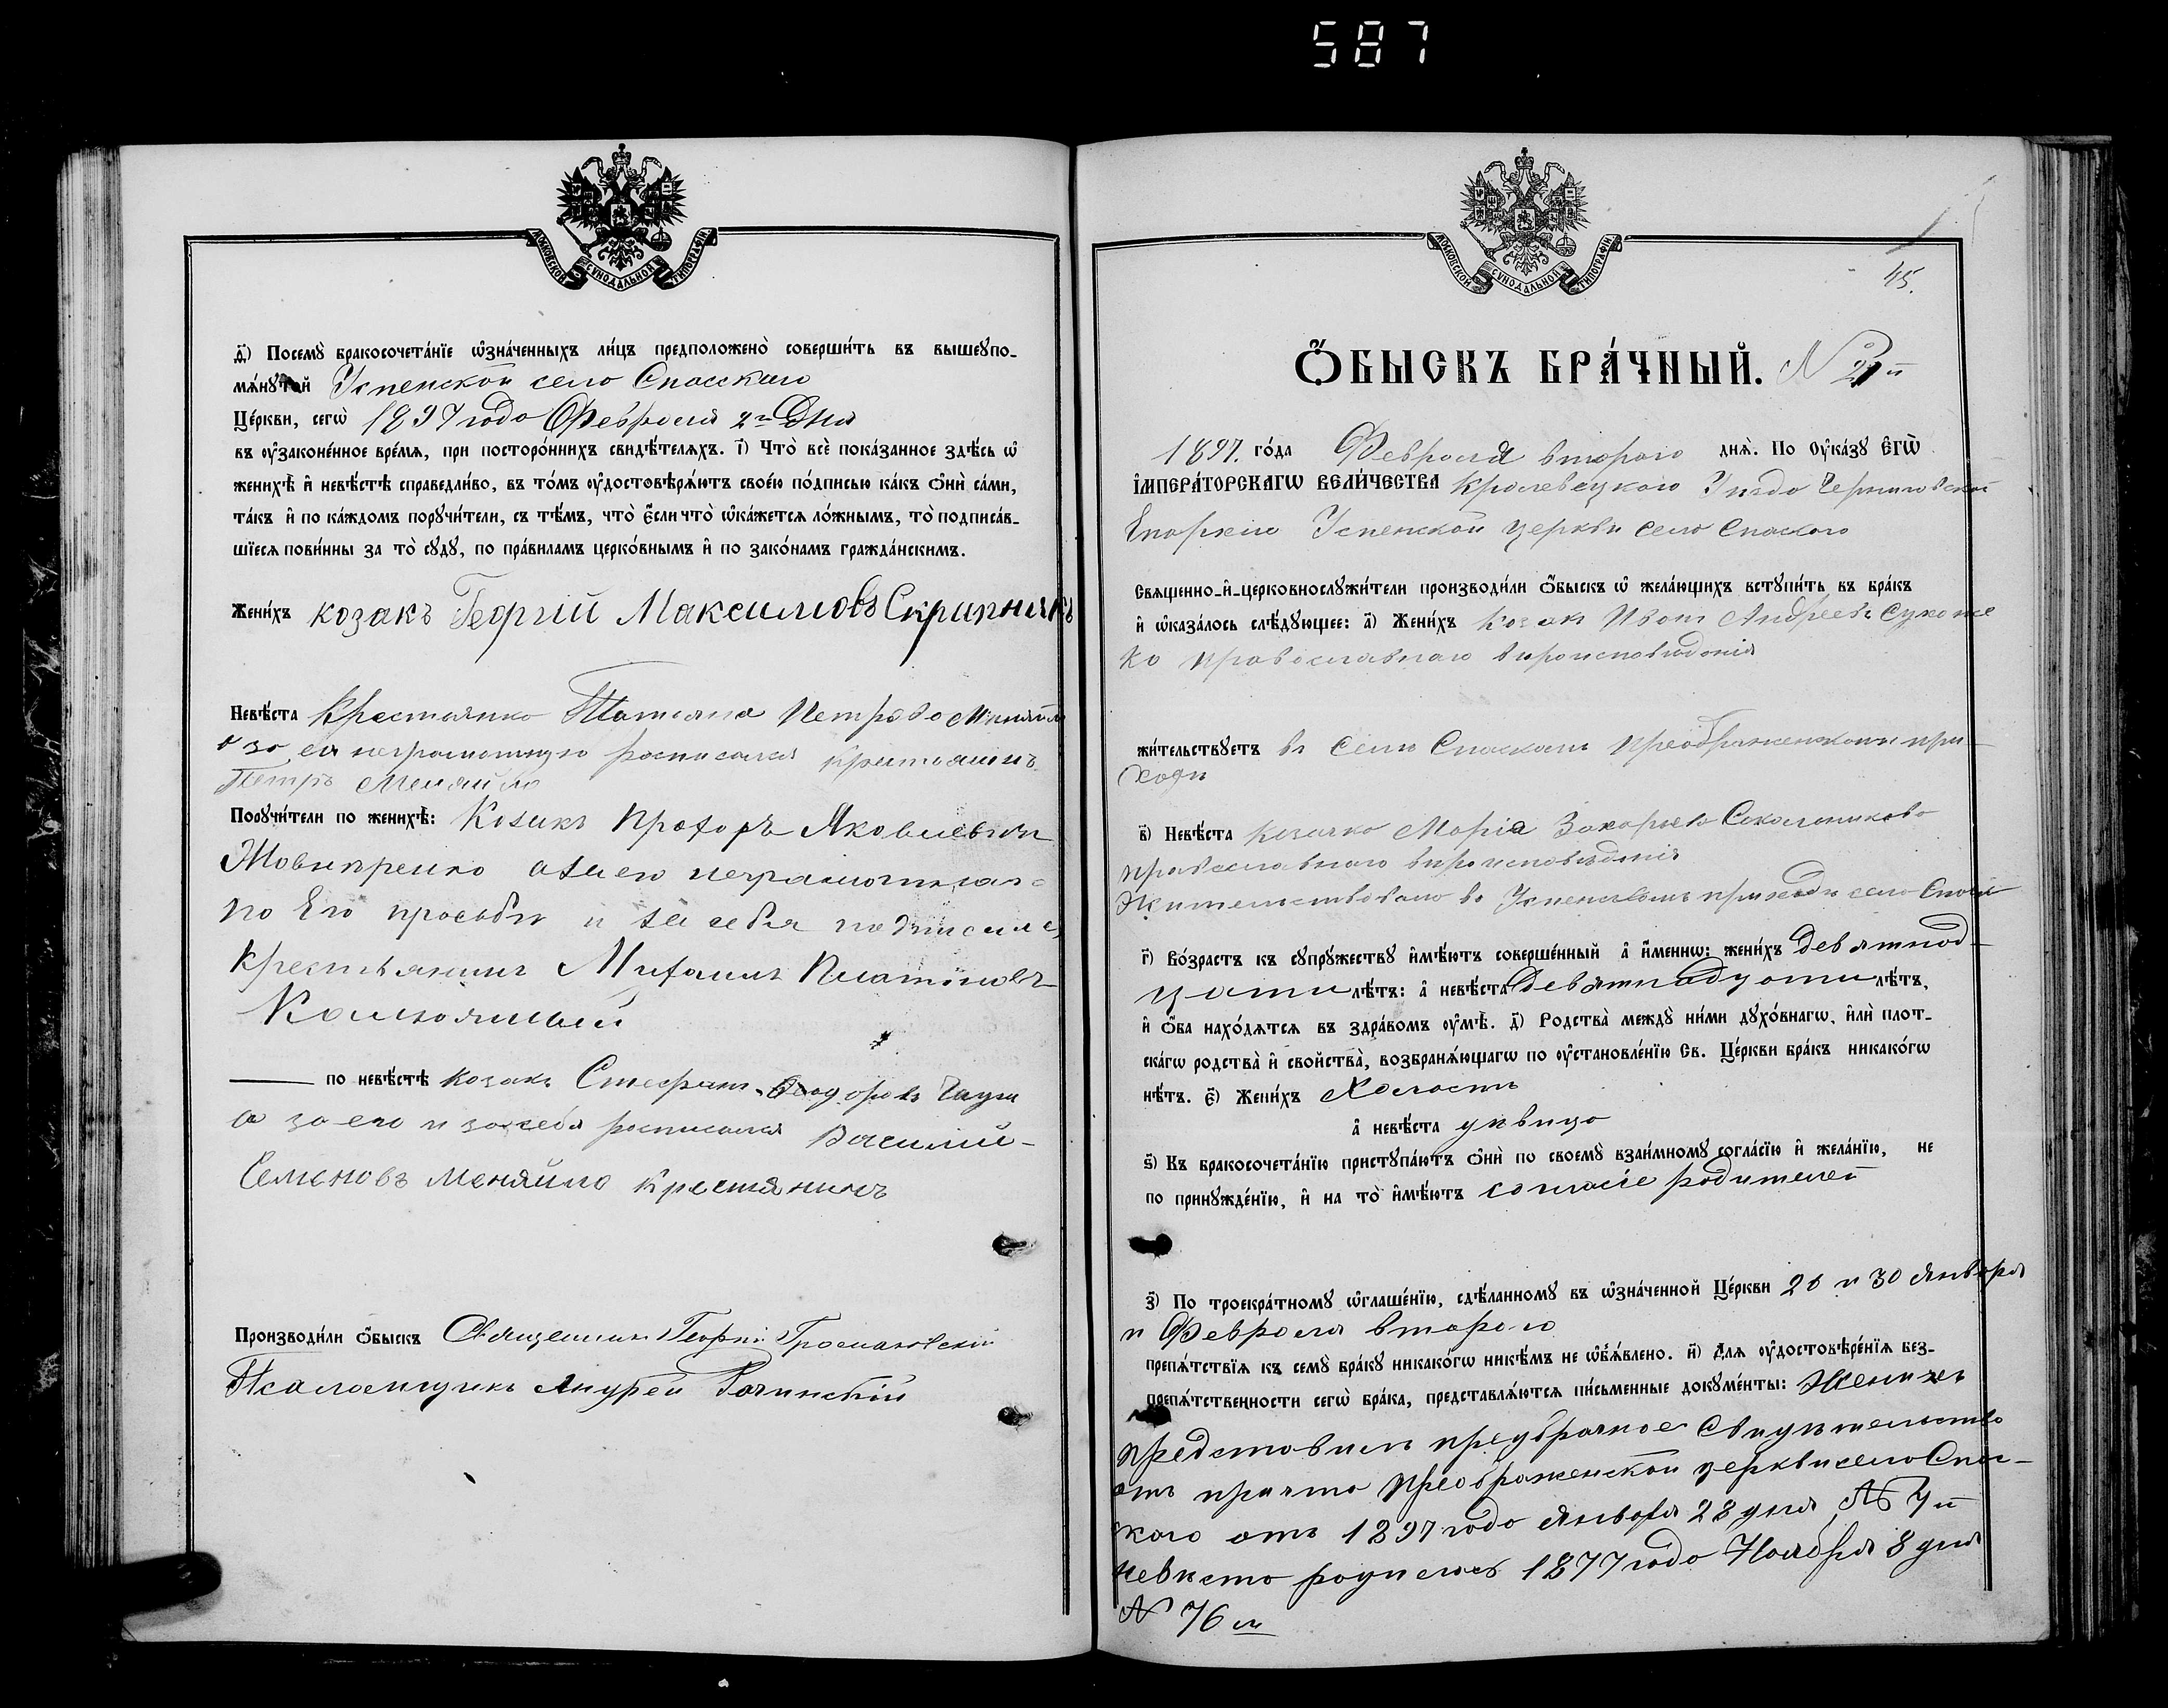 587
МОСКОВСКОЙ СѴНОДАЛЬНОЙ ТИПОГРАФІИ.
д҃) Посемꙋ̀ бракосочета́нїе ѡ҆зна́ченныхъ ли́цъ предположено̀ соверши́ть въ вышеꙋпо-
мѧ́нꙋтой Успенской села Спасскаго
Це́ркви, сегѡ̀ 1897 года Февраля 2го Дня
въ ᲂу҆законе́нное вре́мѧ, при посторо́ннихъ свидѣ́телѧхъ. і҃) Что̀ всѐ пока́занное здѣ́сь ѡ҆
женихѣ̀ и҆ невѣ́стѣ справедли́во, въ то́мъ ᲂу҆достовѣрѧ́ютъ своє́ю по́дписью ка́къ ѻ҆нѝ са́ми,
та́къ и҆ по ка́ждомъ порꙋчи́тели, съ тѣ́мъ, что̀ є҆́сли что̀ ѡ҆ка́жетсѧ ло́жнымъ, то̀ подписа́в-
шїесѧ пови́нны за то̀ сꙋдꙋ̀, по пра́виламъ церко́внымъ и҆ по зако́намъ гражда́нскимъ.
Жени́хъ козакъ Георгій Максимовъ Скрипникъ
Невѣ́ста Крестьянка Татіана Петрова Миняйло
а за ея неграмотную росписался крестьянинъ
Петръ Меняйло
Порꙋчи́тели по женихѣ̀: Козакъ Прохоръ Яковлевичъ
Жовнѣренко а за его неграмотнаго
по Его просьбѣ и за себя подписалс
Крестьянинъ Михаилъ Платоновъ
по невѣ́стѣ козакъ Стефанъ Ѳеодоровъ
а за его и за себя росписался Василий
Семеновъ Меняйло Крестянинъ
Производи́ли ѻ҆́быскъ Священникъ Георгій
Псаломщикъ Андрей
МОСКОВСКОЙ СѴНОДАЛЬНОЙ ТИПОГРАФІИ.
45.
Ѻ҆́БЫСКЪ БРА́ЧНЫЙ. N
1897. го́да Февраля втораго днѧ̀. По ᲂу҆ка́зꙋ Є҆гѡ̀
І҆МПЕРА́ТОРСКАГѠ ВЕЛИ́ЧЕСТВА Кролевецкаго Уѣзда Черниговской
Епархіи Успенской церкви села Спаскаго
Свѧщенно-и҆-церковнослꙋжи́тели производи́ли ѻ҆́быскъ ѡ҆ жела́ющихъ встꙋпи́ть въ бра́къ
и҆ ѡ҆каза́лось слѣ́дꙋющее: а҃) Жени́хъ козакъ Иванъ Андреевъ
ко православнаго вѣроисповѣданія
жи́тельствꙋетъ въ селѣ Спаскомъ Преображенскомъ при-
ходѣ
в҃) Невѣ́ста козачка Марія Захарьева Сокольникова
православнаго вѣроисповѣданія
Жительствовала въ Успенскомъ приходѣ села
г҃) Во́зрастъ къ сꙋпрꙋ́жествꙋ и҆мѣ́ютъ соверше́нный а҆ и҆́меннѡ: жени́хъ девятнад-
цати лѣ́тъ: а҆ невѣ́ста девятнадцати лѣ́тъ,
и҆ ѻ҆́ба нахо́дѧтсѧ въ здра́вомъ ᲂу҆мѣ̀. д҃) Родства̀ междꙋ̀ ни́ми дꙋхо́внагѡ, и҆лѝ плот-
ска́гѡ родства̀ и҆ сво́йства̀, возбранѧ́ющагѡ по ᲂу҆становле́нїю Св. Це́ркви бра́къ никако́гѡ
нѣ́тъ. є҃) Жени́хъ Холостъ
а҆ невѣ́ста дѣвица
ѕ҃) Къ бракосочета́нїю пристꙋпа́ютъ ѻ҆нѝ по своемꙋ̀ взаи́мномꙋ согла́сїю и҆ жела́нїю, не
по принꙋжде́нїю, и҆ на то̀ и҆мѣ́ютъ согласіе родителей
з҃) По троекра́тномꙋ ѡ҆глаше́нїю, сдѣ́ланномꙋ въ ѡ҆зна́ченной Це́ркви 26 и 30 Января
и Февраля втораго
препѧ́тствїѧ къ семꙋ̀ бра́кꙋ никако́гѡ никѣ́мъ не ѡ҆б̾ѧ́влено. и҃) Длѧ ᲂу҆достовѣре́нїѧ без-
препѧ́тственности сегѡ̀ бра́ка, представлѧ́ютсѧ пи́сьменные докꙋме́нты: Женихъ
представилъ предбрачное Свидѣтельство
отъ причта Преображенской церкви села Спас-
кого отъ 1897 года Января 28 дня № 4й
невѣста родилась 1877 года Ноября 8 дня
№ 76м